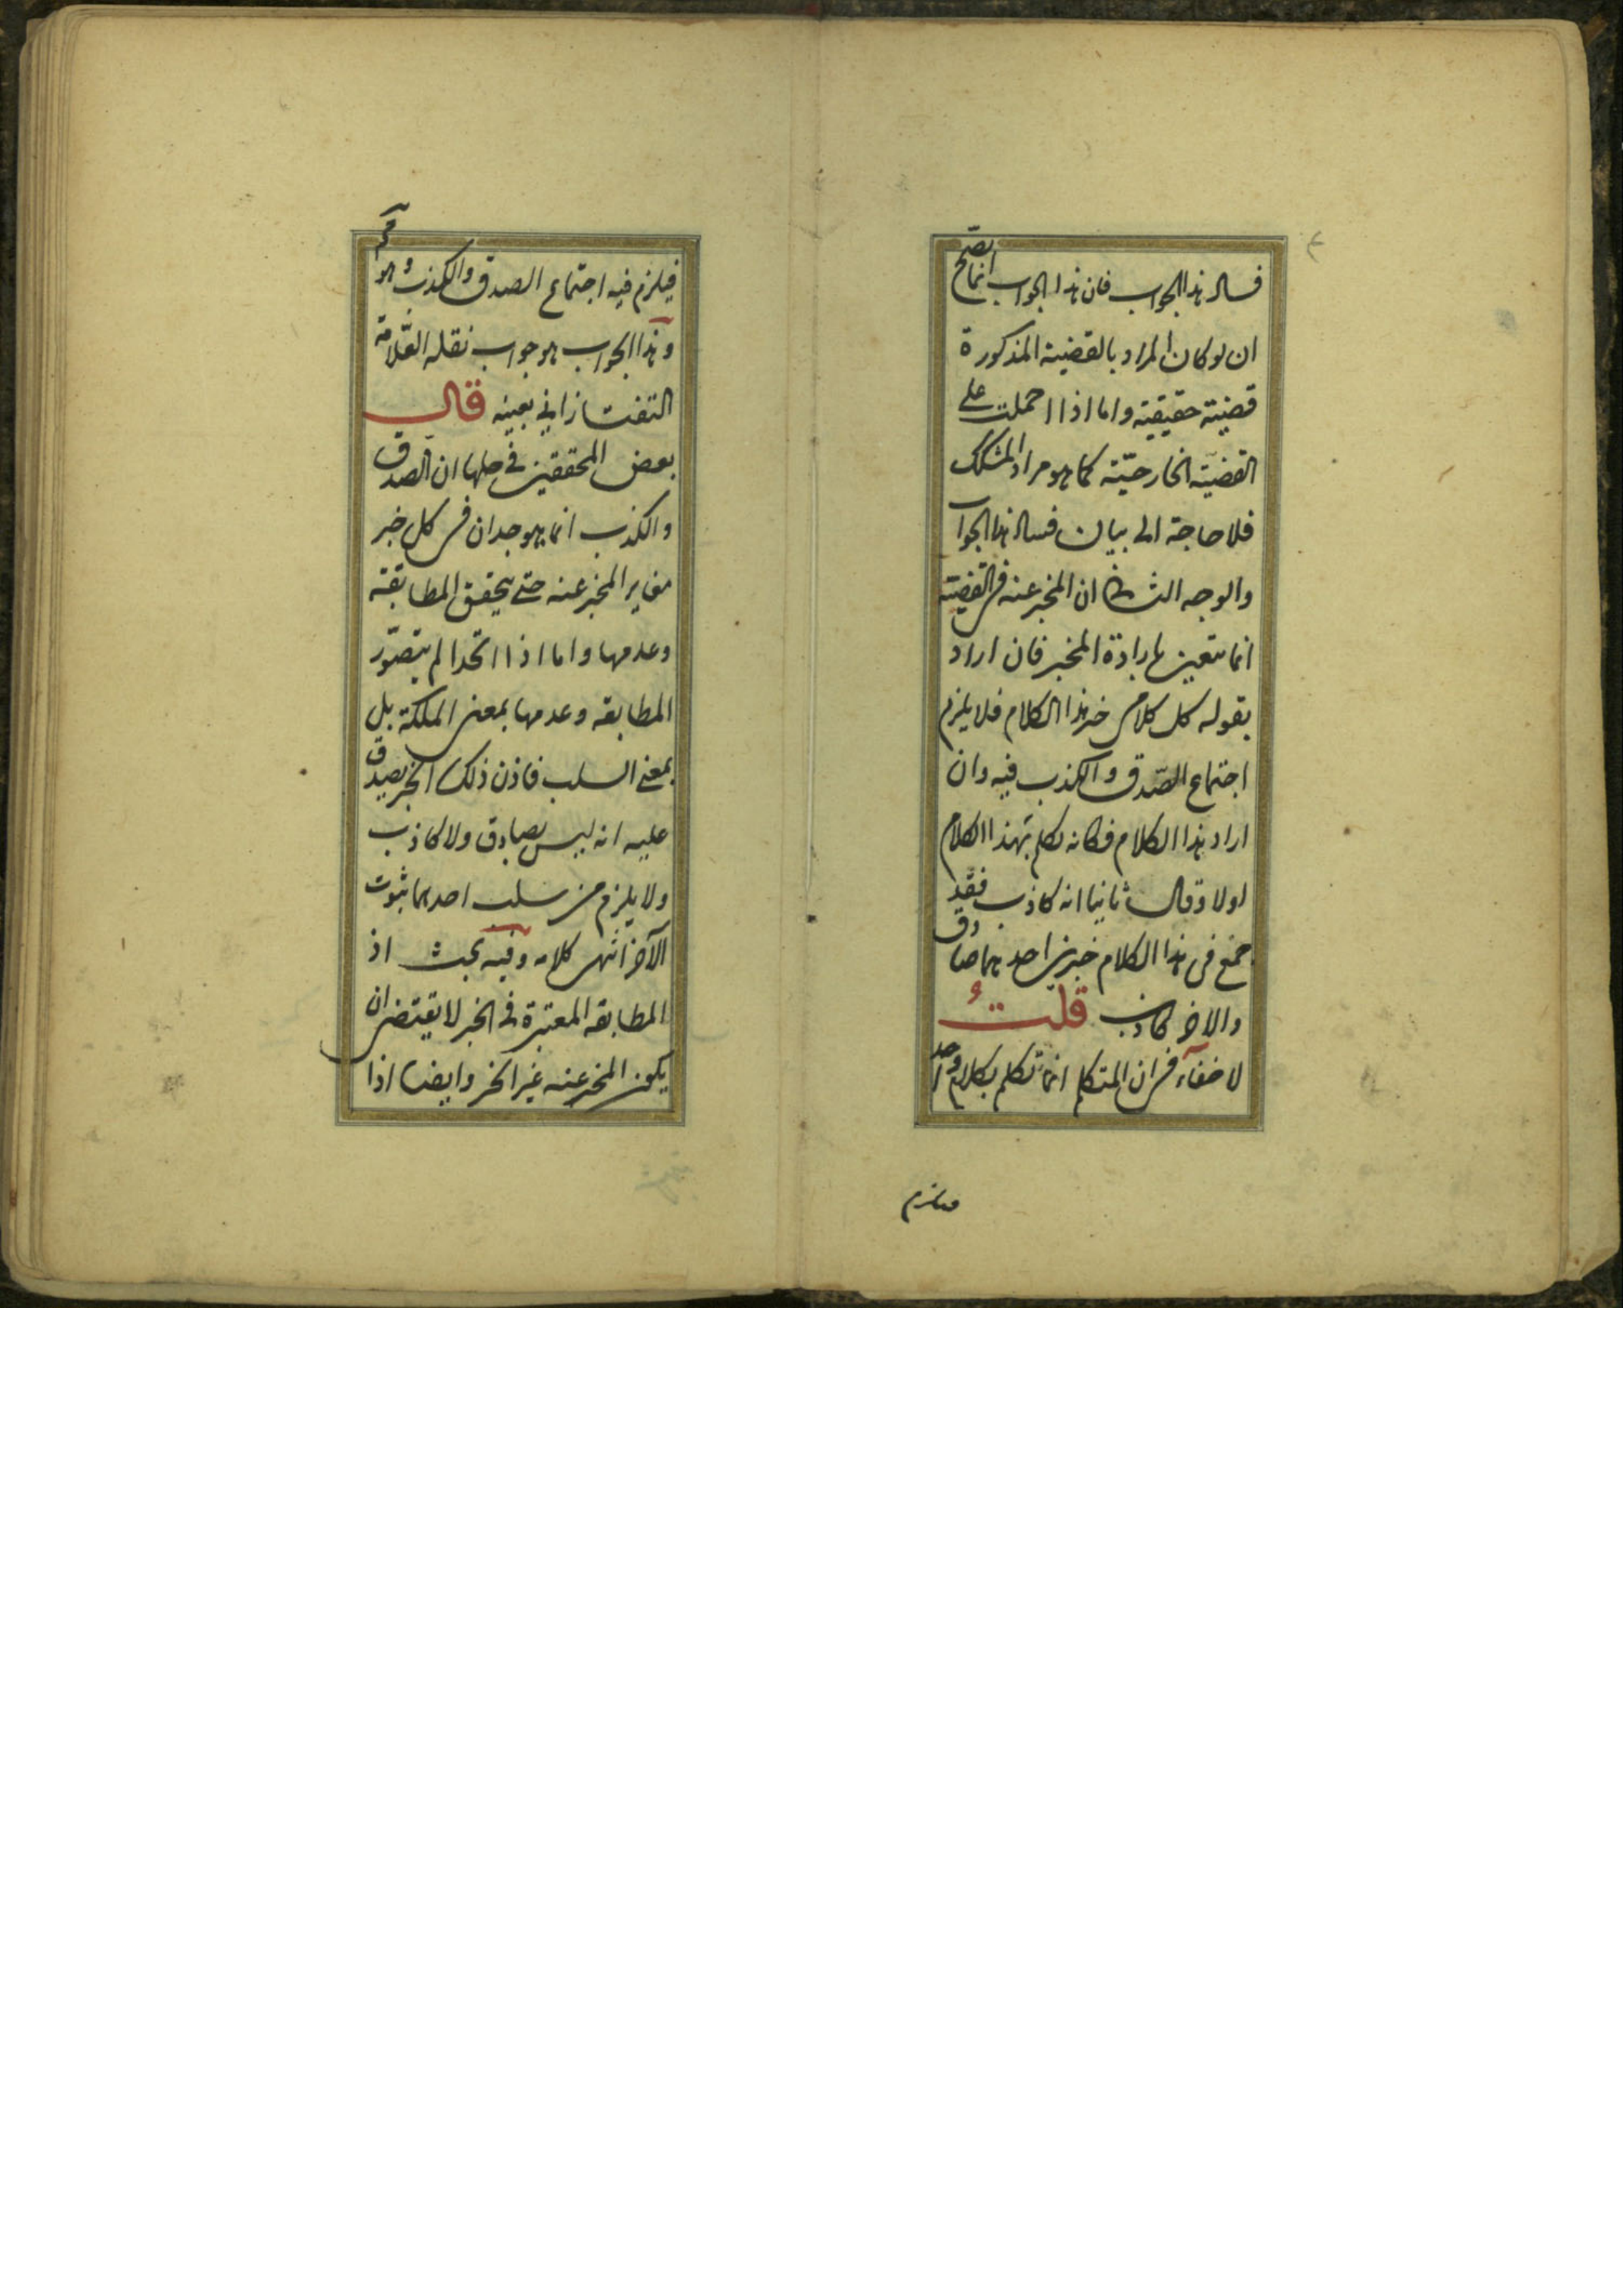 فساد هذا الجواب فان هذا الجواب انما يصح
ان لو كان المراد بالقضية المذكورة
قضية حقيقية واما اذا احملت على
القضية الخارجية كما هو مراد المشكك
فلا حاجة الى بيان فساد هذا الجواب
والوجه الثانى ان المخبر عنه فى القضية
انما يتعين بارادة المخبر فان اراد
بقوله كل كلامى خبر هذا الكلام فلا يلزم
اجتماع الصّدق والكذب فيه وان
اراد هذا الكلام فكانه تكلم بهذا الكلام
اولا وقال ثانيا انه كاذب فقد
جمع فى هذا الكلام خبرين احدهما صادق
والاخر كاذب قلتُ
لا خفآء فى ان المتكلم انما تكلم بكلام واحد
فيلزم
فيلزم فيه اجتماع الصدق والكذب وهو مح
وهذا الجواب هو جواب نقله العّلامة
التفتازانى بعينه قال
بعض المحققين فى حلها ان الصدق
والكذب انما يوجدان فى كل خبر
مغاير المخبر عنه حتى يتحقق المطابقة
وعدمها واما اذا اتحدا لم يتصوّر
المطابقه وعدمها بمعنى الملكة بل
بمعنى السلب فاذن ذلك الخبر يصدق
عليه انه ليس بصادق ولا كاذب
ولا يلزم من سلب احدهما ثبوت
الآخر انتهى كلامه وفيه بحث اذ
المطابقه المعتبرة فى الخبر لا يقتضى ان
يكون المخبر عنه غير الخبر وايضا اذا